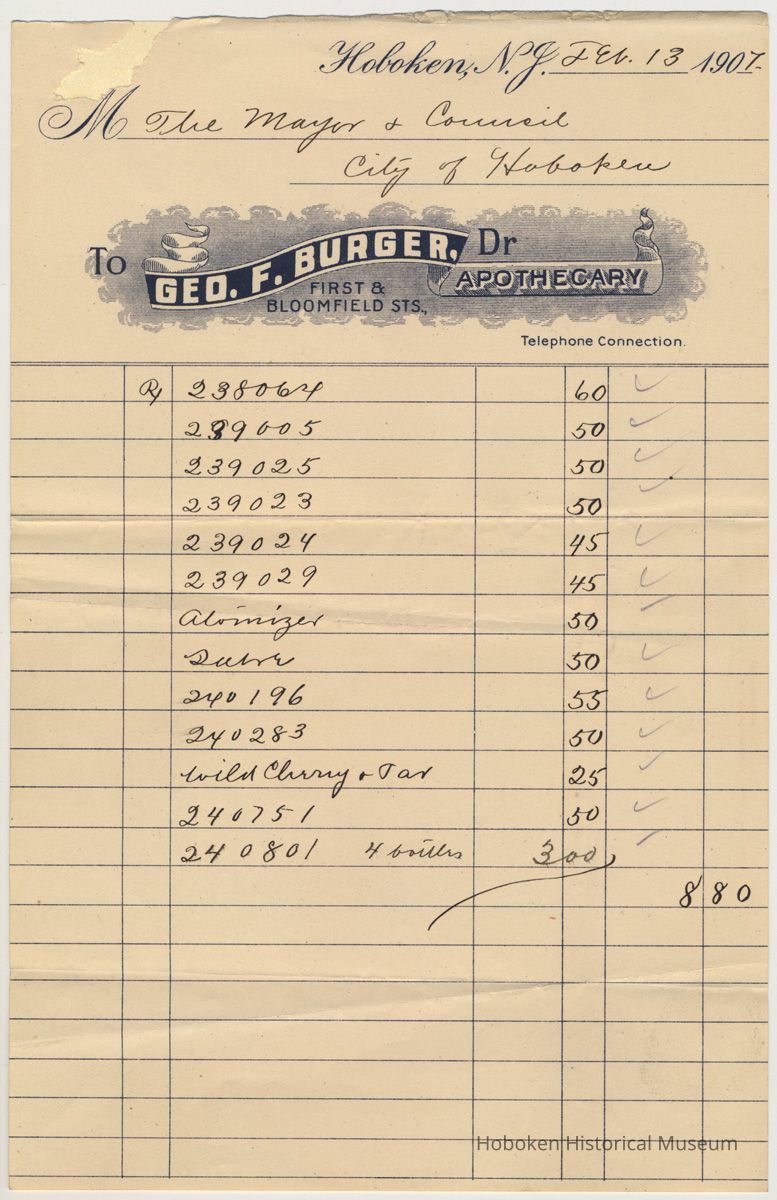 Hoboken, N.J. Feb. 13 1907.
M The Mayor & Council
City of Hoboken
To GEO. F. BURGER, Dr
APOTHECARY
FIRST &
BLOOMFIELD STS.,
Telephone Connection.
Rx 238064 60
239005 50
239025 50
239023 50
239024 45
239029 45
Atomizer 50
50
240196 55
240283 50
Wild Cherry & Tar 25
240751 50
240801 4 bottles 300
8 80
Hoboken Historical Museum